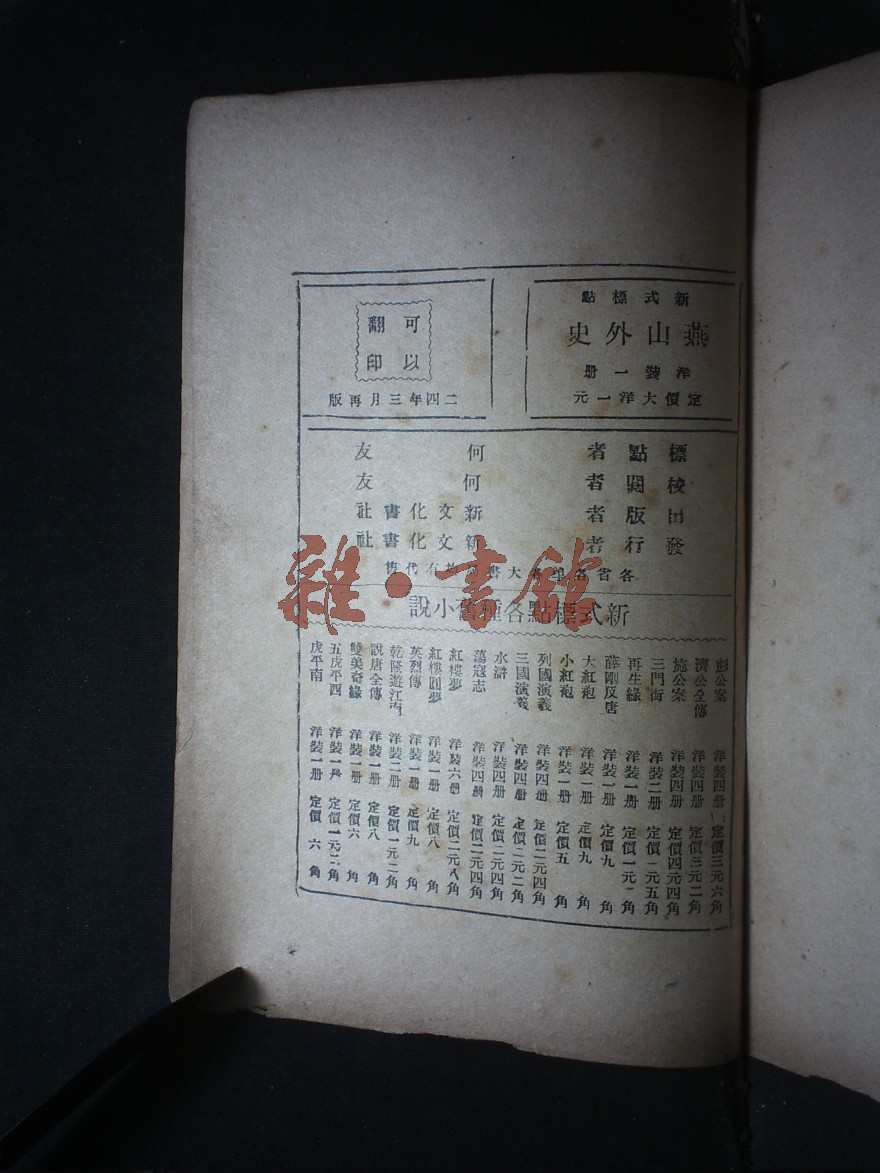 新式標點
燕山外史
洋裝一册
定價大洋一元
可以
翻印
二四年三月再版
標點者 何友
校閱者 何友
出版者 新文化書社
發行者 新文化書社
各省各 大書 均有代售
雜·書館
新式標點各種舊小說
彭公案 洋裝四册 定價三元六角
濟公全傳 洋裝四册 定價三元二角
施公案 洋裝四册 定價四元四角
三門街 洋裝二册 定價一元五角
再生緣 洋裝一册 定價一元 角
薛剛反唐 洋裝一册 定價九角
大紅袍 洋裝一册 定價九角
小紅袍 洋裝一册 定價五角
列國演義 洋裝四册 定價二元四角
三國演義 洋裝四册 定價 元二角
水滸 洋裝四册 定價二元四角
蕩寇志 洋裝四册 定價二元四角
紅樓夢 洋裝六册 定價二元八角
紅樓圓夢 洋裝一册 定價八角
英烈傳 洋裝一册 定價九角
乾隆遊江南 洋裝二册 定價一元二角
說唐全傳 洋裝一册 定價八角
雙美奇緣 洋裝一册 定價六角
五虎平西 洋裝一册 定價一元二角
虎平南 洋裝一册 定價六角